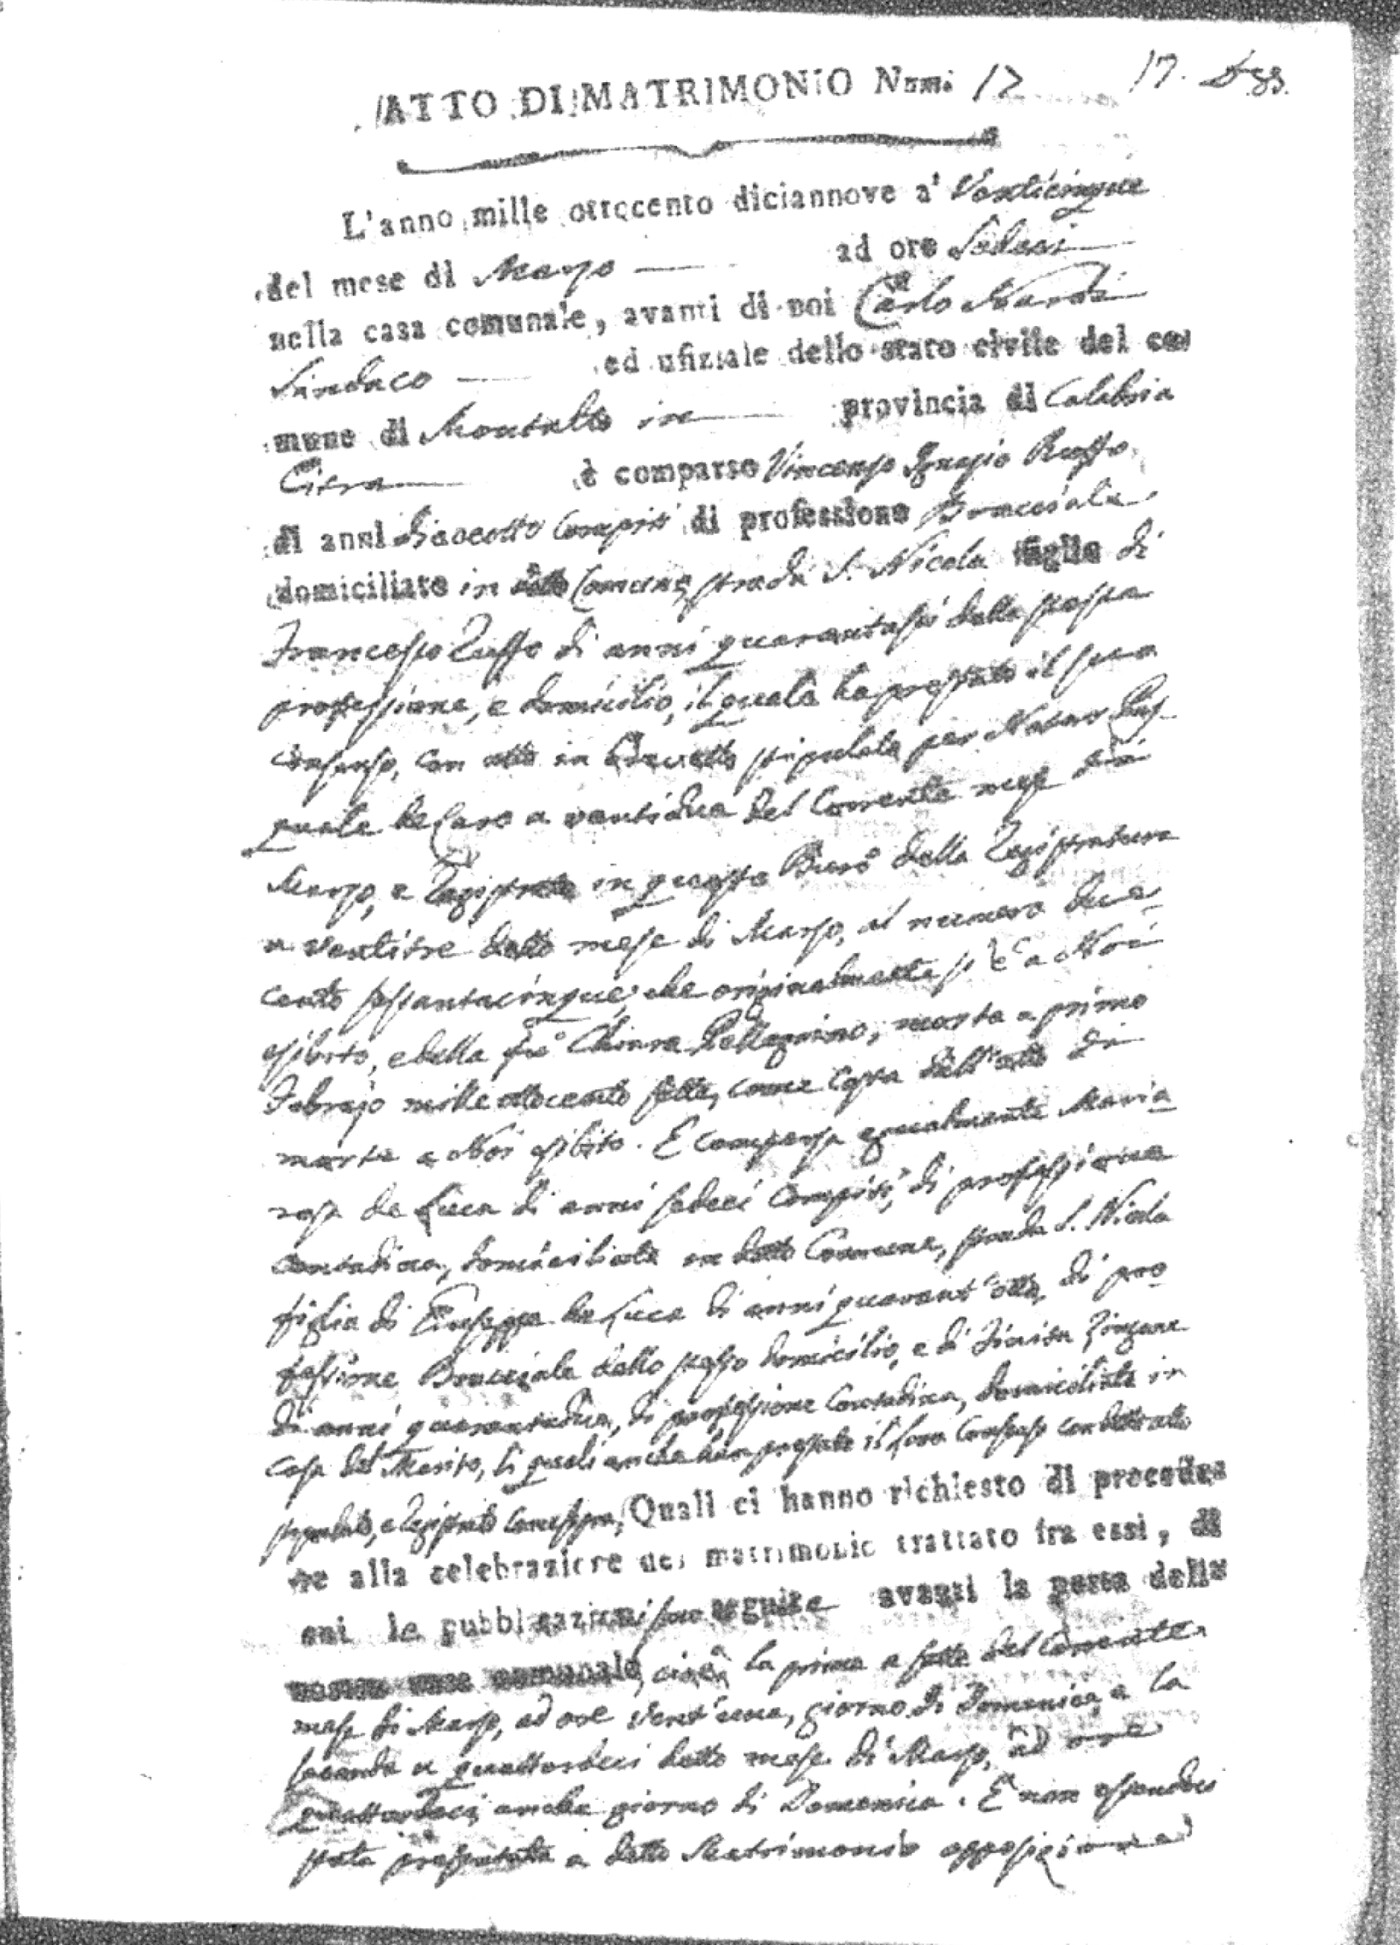 ATTO DI MATRIMONIO Num. 17 17.
L'anno mille ottocento diciannove a' Venticinque
del mese di Marzo ad ore Sedeci
nella casa comunale, avanti di noi Carlo Nardi
Sindaco ed ufiziale dello stato civile del co-
mune di Montalto in provincia di Calabria
Citra è comparso Vincenzo Ignazio Ruffo
di anni diaceotto compiti di professione Bracciale
domiciliato in detto Comune, strada S. Nicola figlio di
Francesco Ruffo di anni quarantasei della stessa
professione, e domicilio, il quale ha prestato il suo
consenso, con atto in Brevetto stipulato per Notaro Pas-
quale de Caro a ventidue del corrente mese di
Marzo, e Registrato in questo Burò della Registratura
a ventitre detto mese di Marzo, al numero due-
cento sessantacinque, che originalmente si è a Noi
esibito, e della fù Chiara Pellegrino, morta a primo
Febrajo mille ottocento sette, come copia dell'atto di
morte a Noi esibito. E comparsa egualmente Maria
rosa de Luca di anni sedeci compiti, di professione
contadina, domiciliata in detto Comune, strada S. Nicola
figlia di Giuseppe de Luca di anni quarant'otto, di pro
fessione Bracciale dello stesso domicilio, e di Zingaro
di anni quarantadue, di professione Contadina, domiciliata in
casa del Marito, li quali anche han prestato il loro Consenso con detto atto
stipulato, e Registrato come sopra, Quali ci hanno richiesto di procede-
re alla celebrazione del matrimonio trattato fra essi, di
cui le pubblicazioni sono seguite avanti la porta della
nostra casa comunale, cioè la prima a sette del Corrente
mese di Marzo, ad ore vent'una, giorno di Domenica, e la
seconda a quattordeci detto mese di Marzo, ad ore
quattordeci, anche giorno di Domenica. E non essendosi
stata presentata a detto Matrimonio opposizione